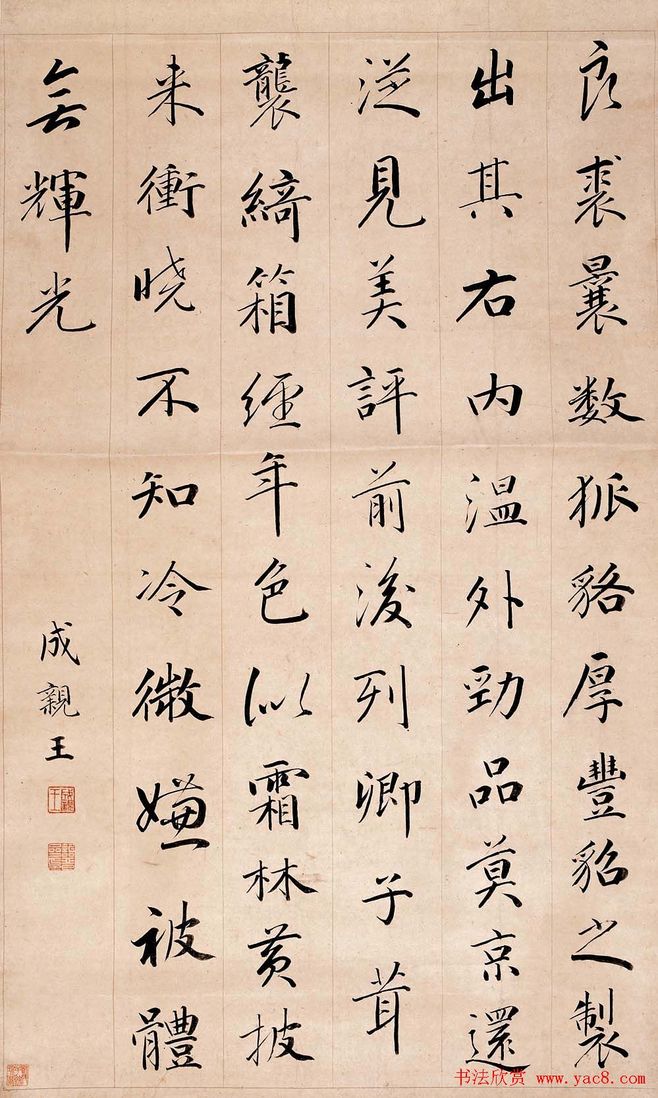 良裘曩数狐貉厚豐貂之製
出其右内温外勁品莫京還
從見美評前後列卿子茸
襲綺箱經年色似霜林黄披
来衝曉不知冷微嫌被體
無輝光
成親王
书法欣赏 www.yac8.com